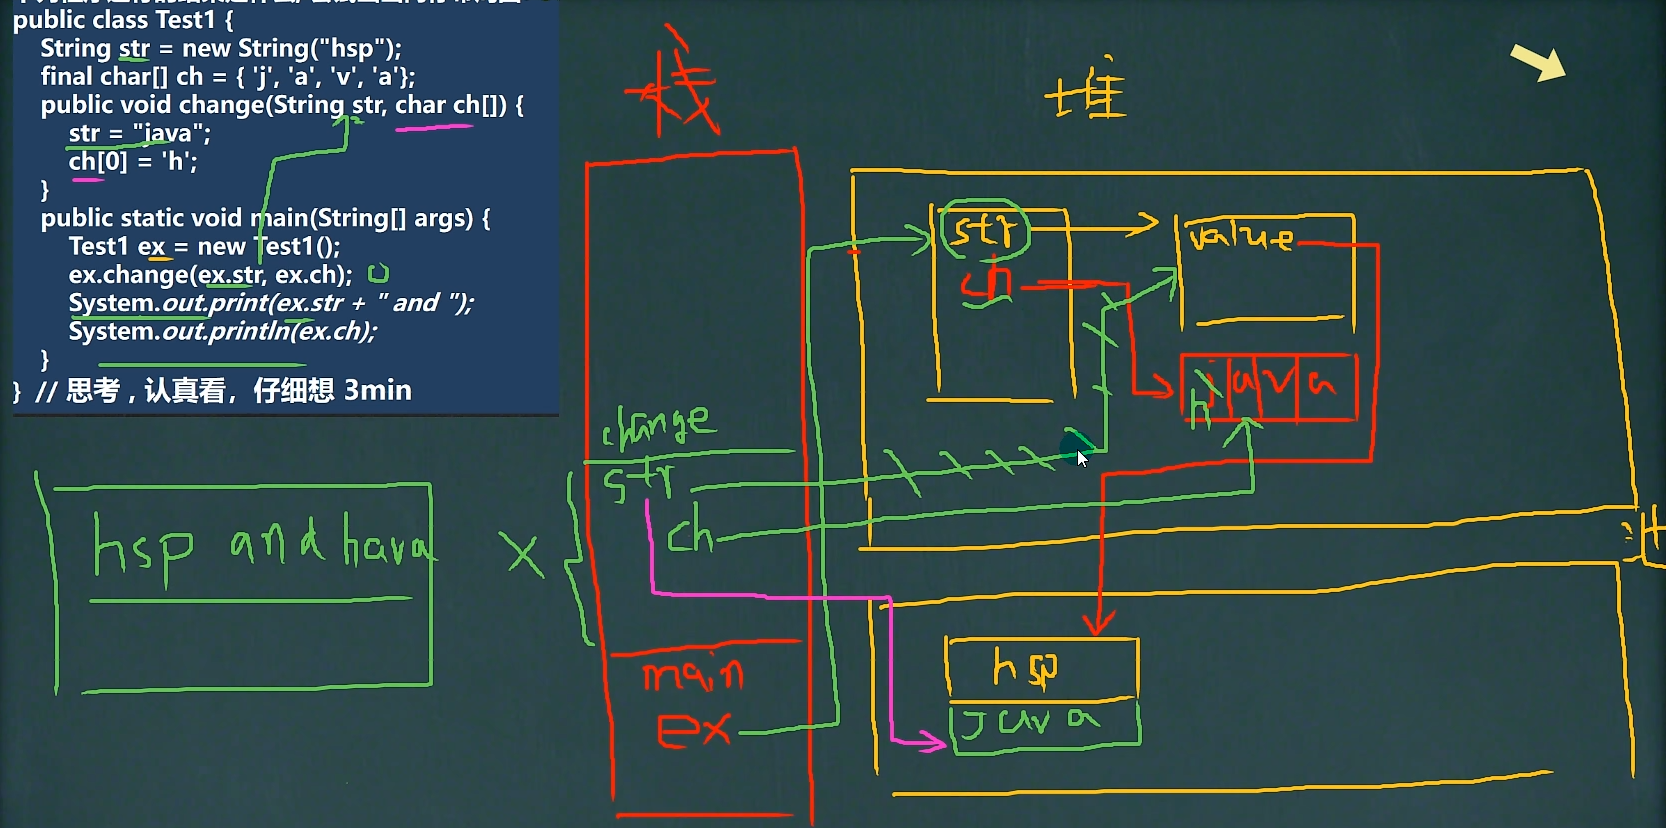 public class Test1 {
String str = new String("hsp");
final char[] ch = { 'j', 'a', 'v', 'a'};
public void change(String str, char ch[]) {
str = "java";
ch[0] = 'h';
}
public static void main(String[] args) {
Test1 ex = new Test1();
ex.change(ex.str, ex.ch);
System.out.print(ex.str + " and ");
System.out.println(ex.ch);
}
} // 思考，认真看，仔细想 3min
栈
堆
str
value
ch
j a v a
h
change
str
ch
hsp and hava
X
main
ex
hsp
java